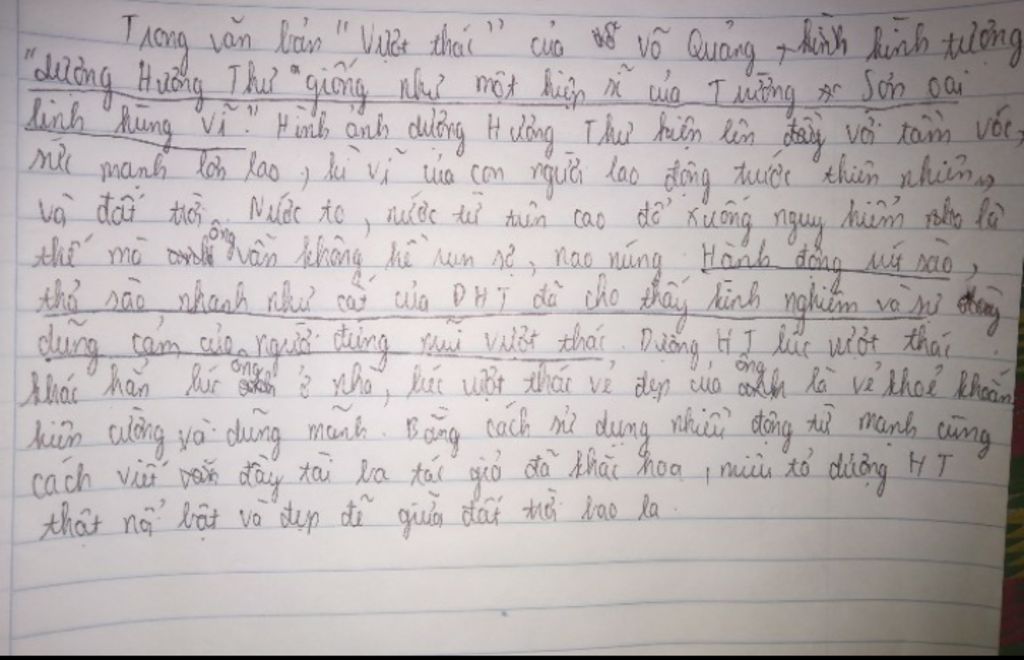 Trong văn bản "Vượt thác" của Võ Quảng, hình tượng
"dượng Hương Thư "giống như một hiệp sĩ của Trường Sơn oai
linh hùng vĩ." Hình ảnh dượng Hương Thư hiện lên đầy với tầm vóc,
sức mạnh lớn lao, kì vĩ của con người lao động trước thiên nhiên,
và đất trời. Nước to, nước từ trên cao đổ xuống nguy hiểm là
thế mà ông vẫn không hề run sợ, nao núng. Hành động rút sào,
thả sào, nhanh như cắt của DHT đã cho thấy kinh nghiệm và sự
dũng cảm của người đứng mũi vượt thác. Dượng HT lúc vượt thác
khác hẳn lúc ông ở nhà, lúc vượt thác vẻ đẹp của ông là vẻ khoẻ khoắn
kiên cường và dũng mãnh. Bằng cách sử dụng nhiều động từ mạnh cùng
cách viết văn đầy tài ba tác giả đã khắc hoạ, miêu tả dượng HT
thật nổi bật và đẹp đẽ giữa đất trời bao la.